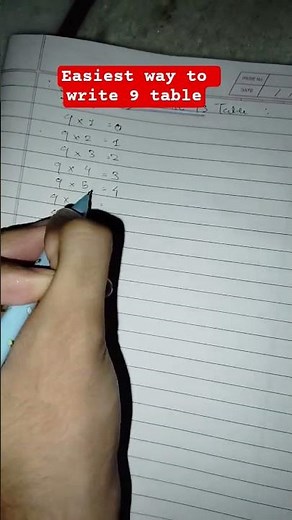 Easiest way to
write 9 table
Table :
9 × 1 = 0
9 × 2 = 1
9 × 3 = 2
9 × 4 = 3
9 × 5 = 4
9 × =